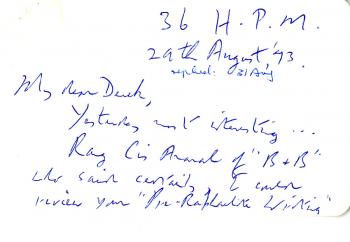 36 H.P.M.
29th August, '93.
replied: 31 Aug
My dear Derek,
Yesterday most interesting ...
Rang Cis Amaral of "B & B"
who said certainly I could
review your "Pre-Raphaelite Writing"